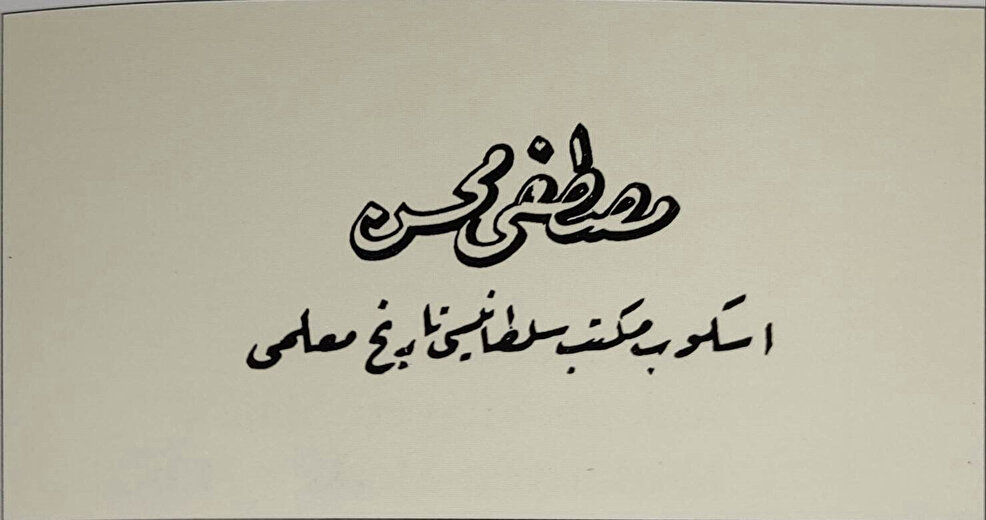 مصطفى محسن
اسكوب مكتب سلطانيسى تاريخ معلمى